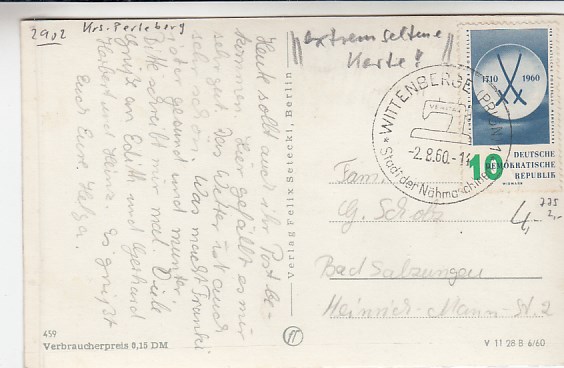 2902 Krs. Perleberg
"extrem seltene
Karte!"
Heute sollt auch ihr Post be-
kommen. Hier gefällt es mir
sehr gut. Das Wetter ist auch
schön. Was macht Franki
ist er gesund und munter.
Bitte schreibt mir mal. Viele
Grüße an Edith und Gerhard
Herbert und Heinz. Es grüßt
Euch Eure Helga.
459
Verbraucherpreis 0,15 DM
Verlag Felix Setecki, Berlin
WITTENBERGE (PRIGN) 1
VERITAS
-2.8.60.-14
Stadt der Nähmaschinen
1710 1960
10
DEUTSCHE
DEMOKRATISCHE
REPUBLIK
775
2,-
4,-
Fam.
G. Scholz
Bad Salzungen
Heinrich-Mann-St. 2
V 11 28 B 6/60